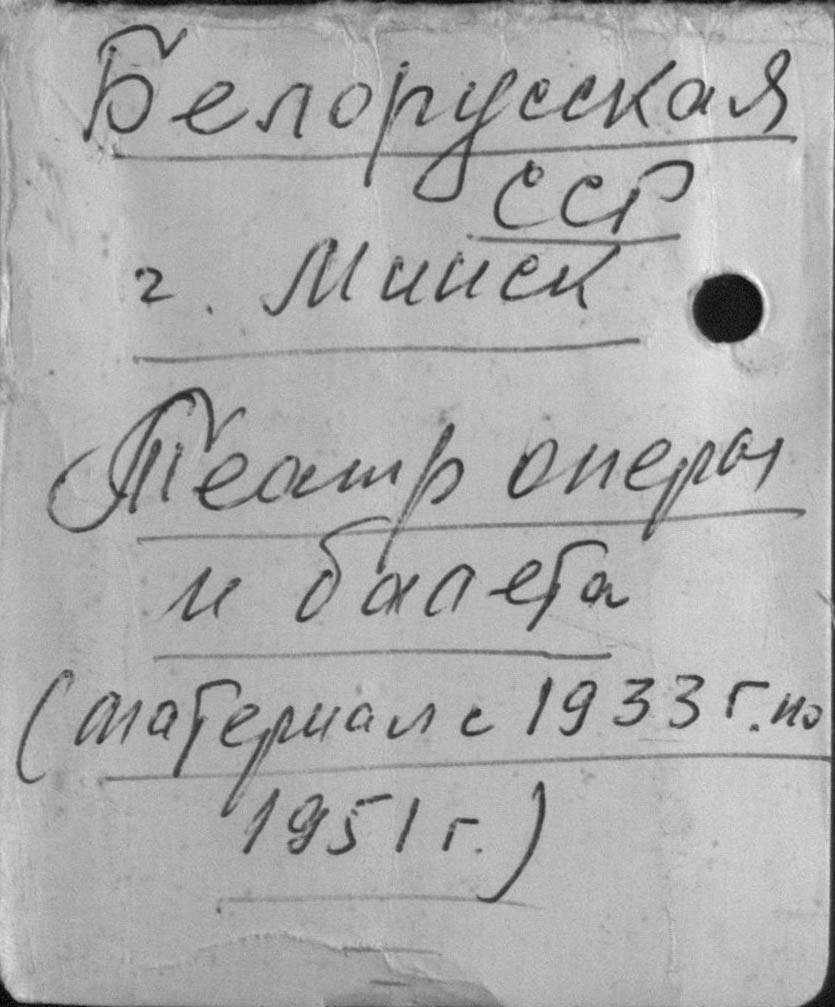 Белорусская
ССР
г. Минск
Театр оперы
и балета
(материал с 1933 г. по
1951 г.)